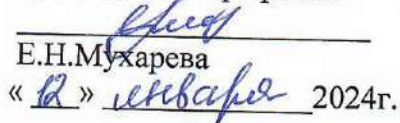 Е.Н.Мухарева
« 12 » января 2024г.